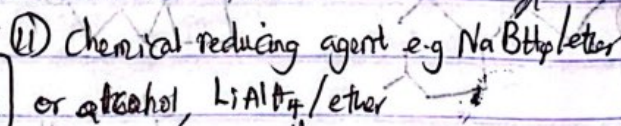 (ii) Chemical reducing agent e.g NaBH4/ether
or alcohol, LiAlH4/ether